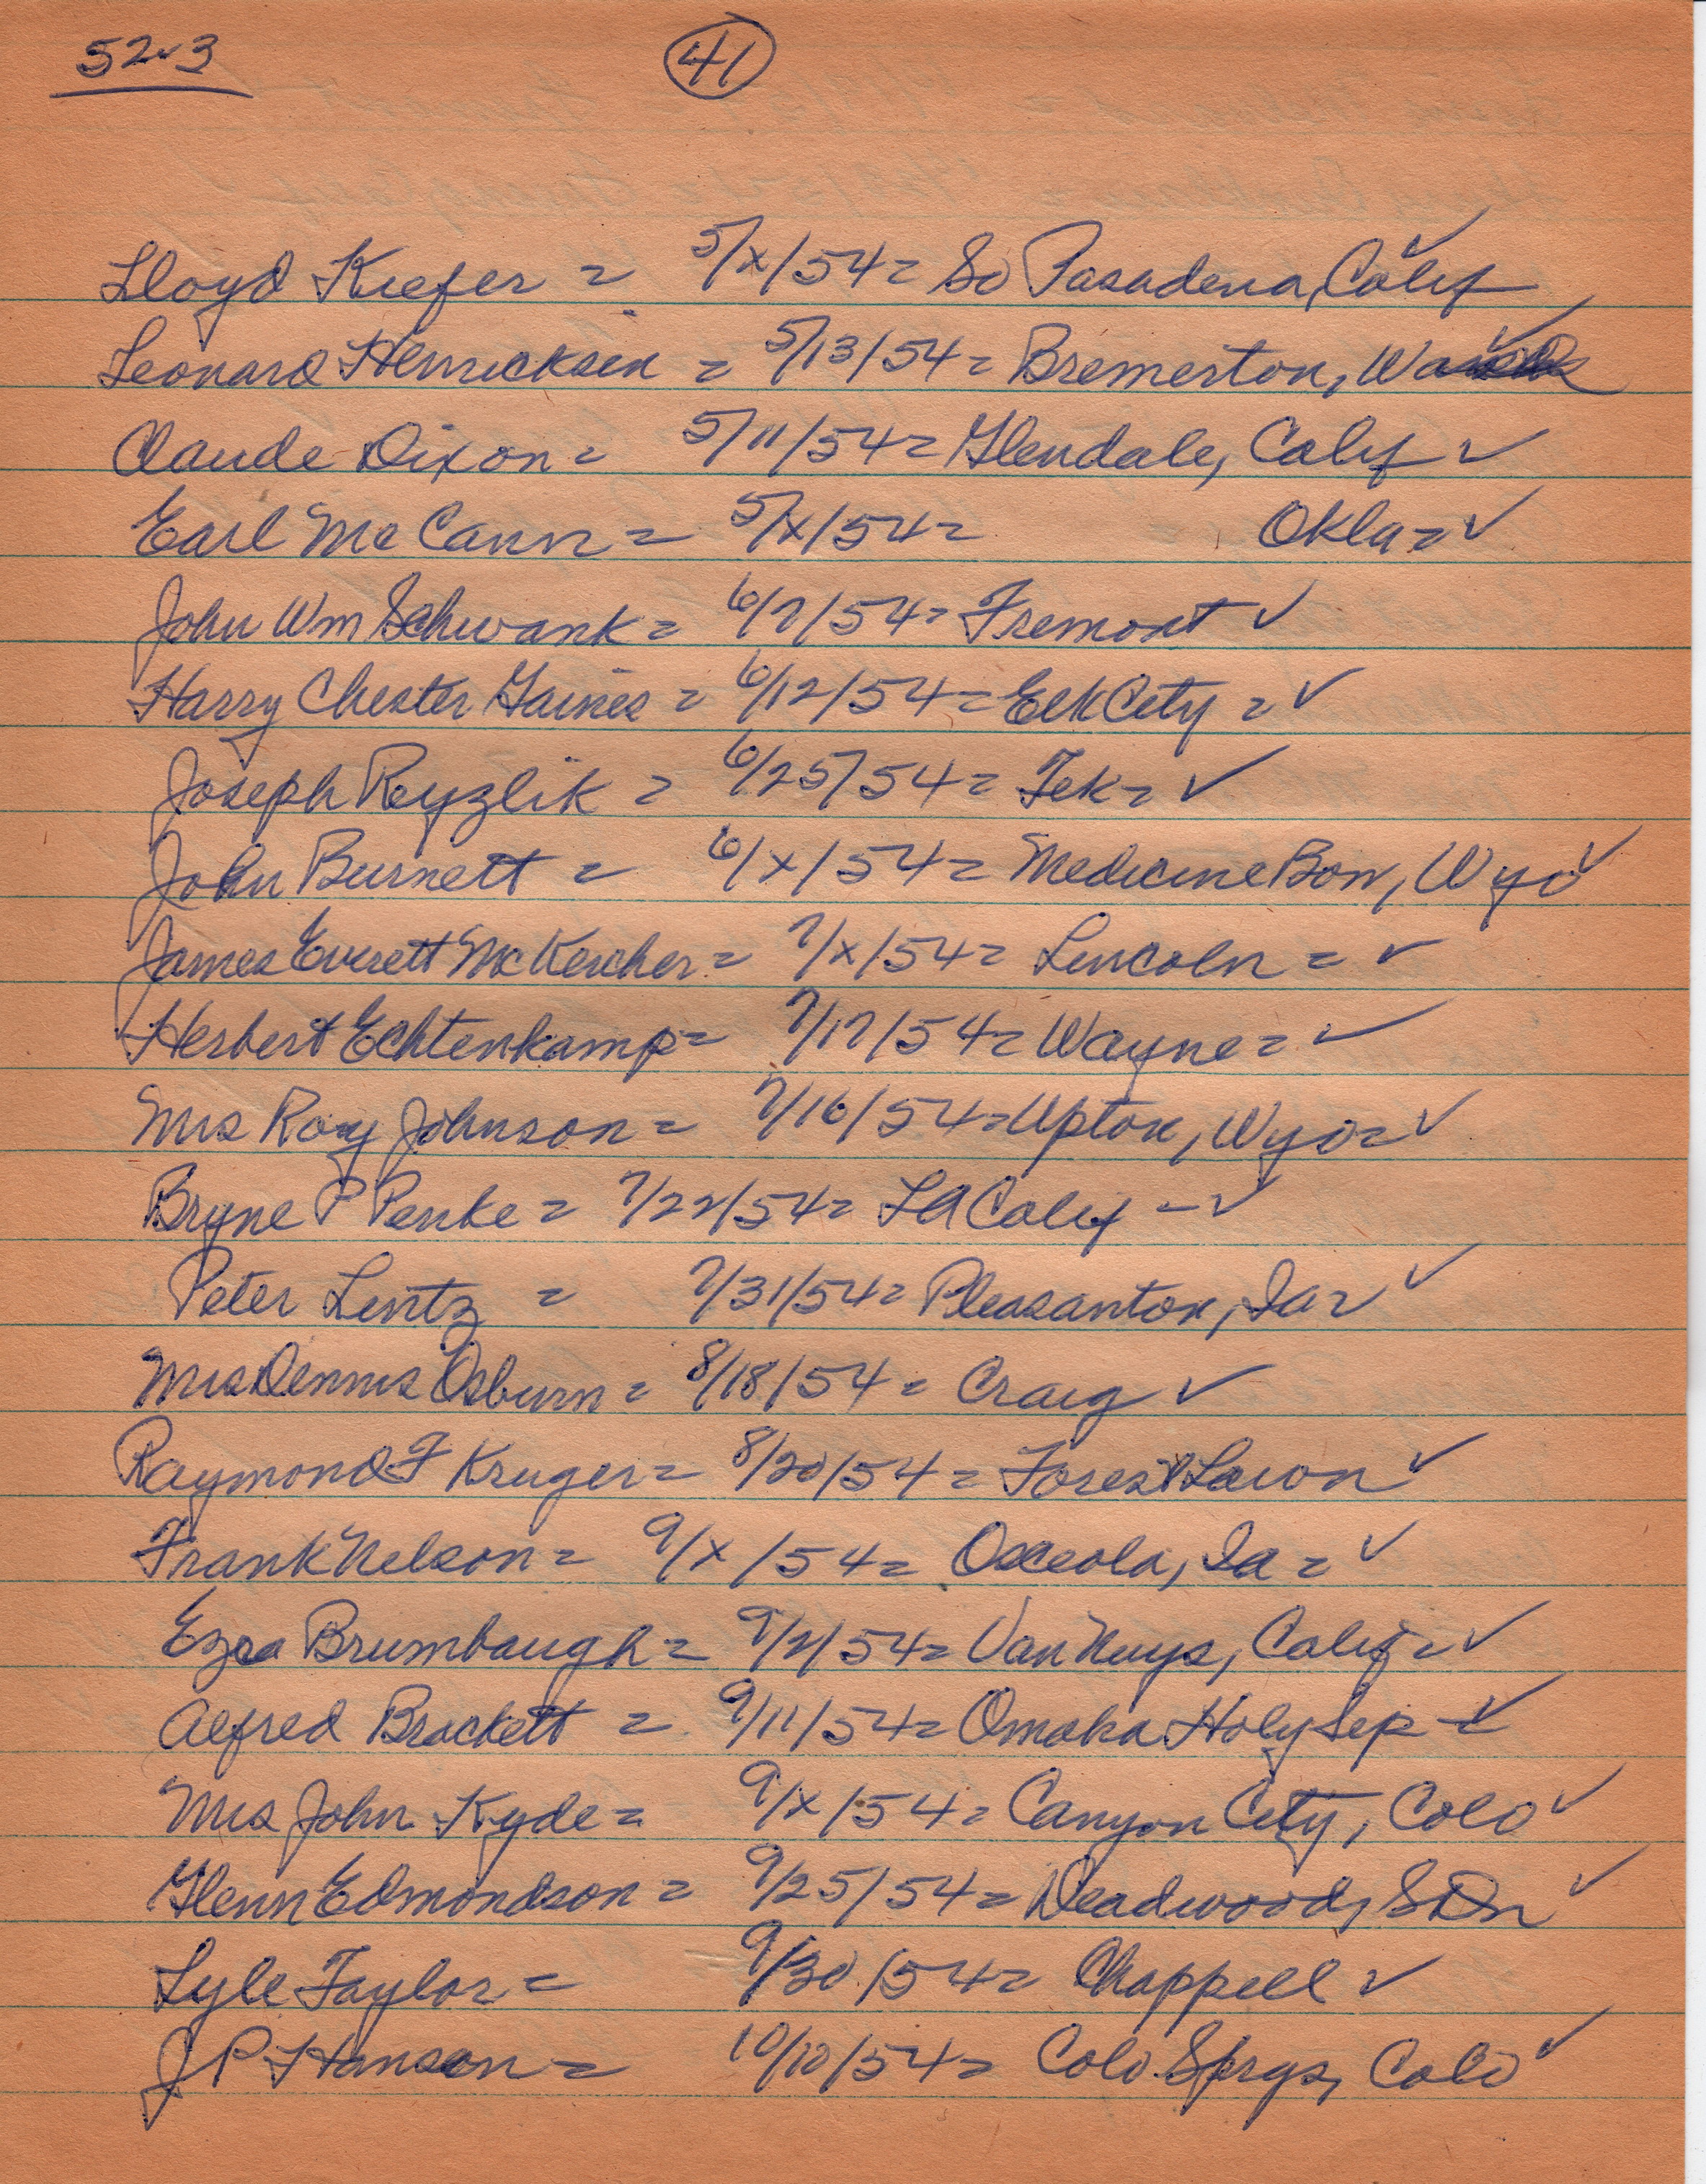 52-3
41
Lloyd Kiefer = 5/x/54 = So Pasadena, Calif ✓
Leonard Henricksen = 5/13/54 = Bremerton, ✓
Claude Dixon = 5/11/54 = Glendale, Calif ✓
Earl McCann = 5/x/54 = , Okla = ✓
John Wm Schwank = 6/7/54 = Fremont ✓
Harry Chester Gaines = 6/12/54 = Elk City = ✓
Joseph Reyzlik = 6/25/54 = Tek = ✓
John Burnett = 6/x/54 = Medicine Bow, Wyo ✓
James Everett McKercher = 7/x/54 = Lincoln = ✓
Herbert Echtenkamp = 7/17/54 = Wayne = ✓
Mrs Roy Johnson = 7/16/54 = Upton, Wyo = ✓
Bryne P Penke = 7/22/54 = LA Calif - ✓
Peter Lentz = 7/31/54 = Pleasanton, Ia = ✓
Mrs Dennis Osburn = 8/18/54 = Craig ✓
Raymond F Kruger = 8/20/54 = Forest Lawn ✓
Frank Nelson = 9/x/54 = Osceola, Ia = ✓
Ezra Brumbaugh = 9/2/54 = Van Nuys, Calif = ✓
Alfred Brackett = 9/11/54 = Omaha Holy Sep - ✓
Mrs John Kyde = 9/x/54 = Canyon City, Colo ✓
Glenn Edmondson = 9/25/54 = Deadwood, SD ✓
Lyle Taylor = 9/30/54 = Chappell ✓
J P Hanson = 10/10/54 = Colo Sprgs, Colo ✓